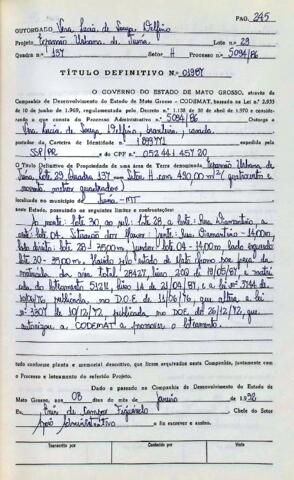 PAG. 245
OUTORGADO Vera Lúcia de Souza Delfino
Projeto Expansão Urbana de Juina Lote n.o 29
Quadra n.o 137 Setor H Processo n.o 5094/86
TÍTULO DEFINITIVO N.o 01987
O GOVERNO DO ESTADO DE MATO GROSSO, através da
Companhia de Desenvolvimento do Estado de Mato Grosso - CODEMAT, baseado na Lei n.o
10 de junho de 1.969, regulamentada pelo Decreto n.o 1.138 de 30 de abril de 1.970 e considerando
o que consta do Processo Administrativo n.o 5.094/86 Outorga a
Vera Lúcia de Souza Delfino, brasileira, casada
portador da Carteira de Identidade n.o
SSP/PR e do CPF n.o 052 441 457 20
O Título Definitivo de Propriedade de uma área de Terra denominada Expansão Urbana de
Juina, Lote 29, Quadra 137 - Setor H com 490,00 m2 (quatrocentos e
noventa metros quadrados)
localizada no município de Juina - MT
neste Estado, passando os seguintes limites e confrontações:
Ao norte: lote 30, ao sul: lote 28, a leste: Rua Diamantino, a
oeste: lote 04. Frente: Rua Diamantino - 14,00m,
lado direito: lote 28 - 35,00m, fundos: lote 04 - 14,00m, lado esquerdo
lote 30 - 35,00m. Havido pelo Estado de Mato Grosso por força da
matrícula da área total 28427, livro 202 de 19/05/87 e matrícula
do loteamento 51211, livro de 21/09/87, e a lei nº 7144 de
10/06/86 publicada no D.O.E. de 11/06/86, que altera a lei
nº 3307 de 10/12/72, publicada no D.O.E. de 26/12/72, que
autorizou a CODEMAT a promover o loteamento.
tudo conforme planta e memorial descritivo, que ficam arquivados nesta Companhia, juntamente com
o Processo e loteamento do referido Projeto.
Dado e passado na Companhia de Desenvolvimento do Estado de
Mato Grosso, aos 08 dias do mês de janeiro de 1.998
Eu, de Campos Figueiredo Chefe do Setor
Apoio Administrativo o fiz escrever e assino.
Transcrito por Conferido por Visto